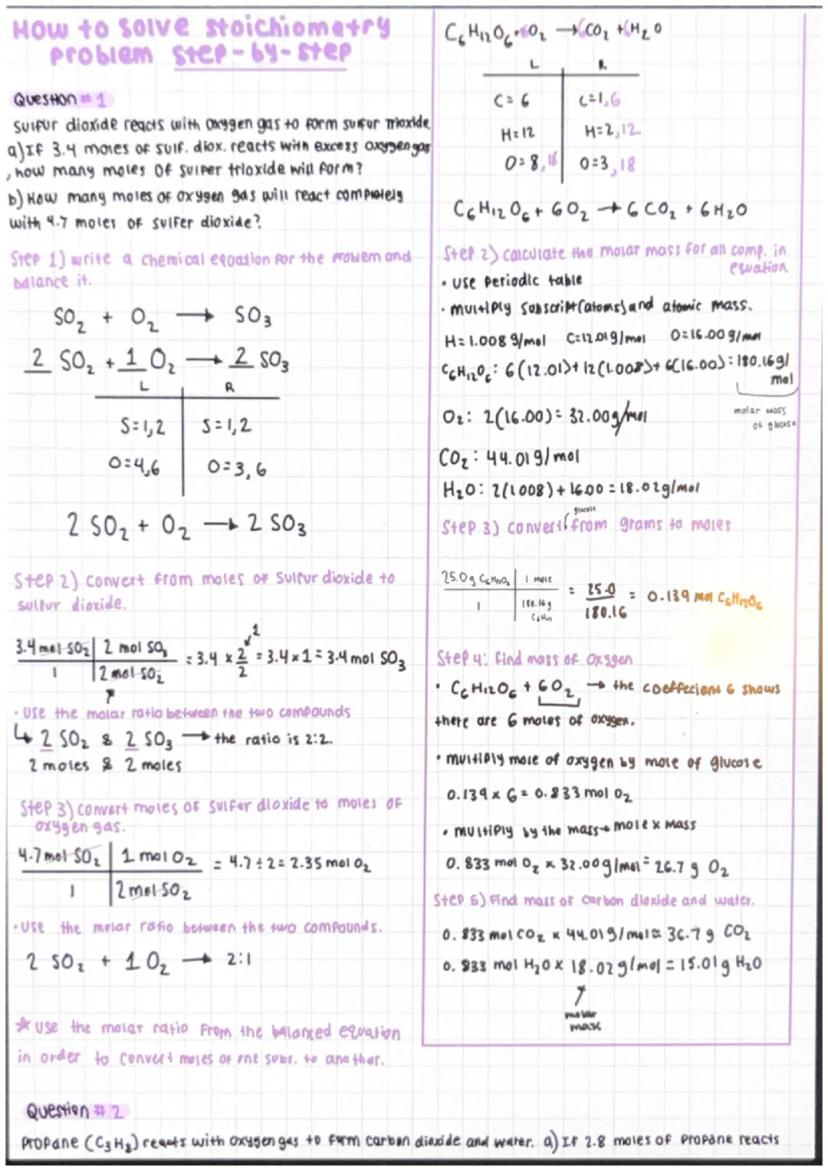 How to solve stoichiometry
problem step-by-step
Question #1
Sulfur dioxide reacts with oxygen gas to form sulfur trioxide
a) If 3.4 moles of sulf. diox. reacts with excess oxygen gas
, how many moles of sulfer trioxide will form?
b) How many moles of oxygen gas will react completely
with 4.7 moles of sulfer dioxide?
Step 1) write a chemical equation for the problem and
balance it.
SO₂ + O₂ → SO₃
2 SO₂ + 1 O₂ → 2 SO₃
L R
S=1,2 S=1,2
O=4,6 O=3,6
2 SO₂ + O₂ → 2 SO₃
Step 2) convert from moles of sulfur dioxide to
sulfur dioxide.
3.4 mol SO₂ | 2 mol SO₃ = 3.4 × 2/2 = 3.4 × 1 = 3.4 mol SO₃
1 | 2 mol SO₂
1
• Use the molar ratio between the two compounds
↳ 2 SO₂ & 2 SO₃ → the ratio is 2:2.
2 moles & 2 moles
Step 3) convert moles of sulfer dioxide to moles of
oxygen gas.
4.7 mol SO₂ | 1 mol O₂ = 4.7 ÷ 2 = 2.35 mol O₂
1 | 2 mol SO₂
• Use the molar ratio between the two compounds.
2 SO₂ + 1 O₂ → 2:1
☆ Use the molar ratio from the balanced equation
in order to convert moles of one subs. to another.
Question #2
Propane (C₃H₈) reacts with oxygen gas to form carbon dioxide and water. a) If 2.8 moles of propane reacts
C₆H₁₂O₆ + 6O₂ → 6CO₂ + 6H₂O
L R
C=6 C=1,6
H=12 H=2,12
O=8,18 O=3,18
C₆H₁₂O₆ + 6O₂ → 6CO₂ + 6H₂O
Step 2) calculate the molar mass for all comp. in
equation
• use periodic table
• multiply subscript (atoms) and atomic mass.
H=1.008 g/mol C=12.01 g/mol O=16.00 g/mol
C₆H₁₂O₆: 6(12.01)+12(1.008)+6(16.00)=180.16 g/
mol
molar mass
of glucose
O₂: 2(16.00)=32.00 g/mol
CO₂: 44.01 g/mol
H₂O: 2(1.008)+16.00=18.02 g/mol
glucose
Step 3) convert from grams to moles
25.0 g C₆H₁₂O₆ | 1 mole = 25.0/180.16 = 0.139 mol C₆H₁₂O₆
1 | 180.16 g
Step 4: Find mass of oxygen
• C₆H₁₂O₆ + 6O₂ → the coeffecient 6 shows
there are 6 moles of oxygen.
• multiply mole of oxygen by mole of glucose
0.139 × 6 = 0.833 mol O₂
• multiply by the mass → mole × mass
0.833 mol O₂ × 32.00 g/mol = 26.7 g O₂
Step 5) Find mass of carbon dioxide and water.
0.833 mol CO₂ × 44.01 g/mol = 36.7 g CO₂
0.833 mol H₂O × 18.02 g/mol = 15.01 g H₂O
molar
mass